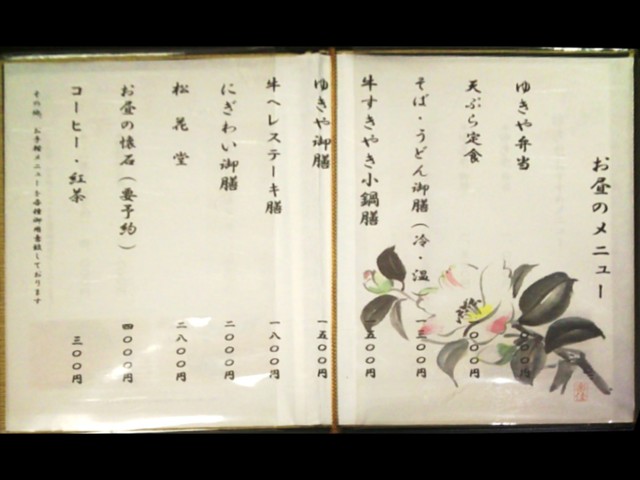 お昼のメニュー
ゆきや弁当
天ぷら定食 〇〇〇円
そば・うどん御膳(冷・温
牛すきやき小鍋膳 一五〇〇円
ゆきや御膳 一五〇〇円
牛ヘレステーキ膳 一八〇〇円
にぎわい御膳 二〇〇〇円
松花堂 二八〇〇円
お昼の懐石(要予約) 四〇〇〇円
コーヒー・紅茶 三〇〇円
その他、お子様メニューも各種御用意致しております